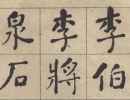 李伯
李將
泉石